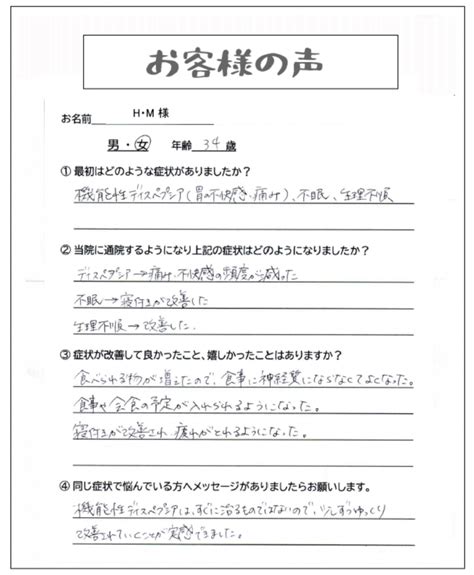 お客様の声
お名前 H・M 様
男・女 年齢 34 歳
① 最初はどのような症状がありましたか?
機能性ディスペプシア(胃の不快感・痛み)、不眠、生理不順
② 当院に通院するようになり上記の症状はどのようになりましたか?
ディスペプシア→痛み・不快感の頻度が減った
不眠→寝付きが改善した
生理不順→改善した.
③ 症状が改善して良かったこと、嬉しかったことはありますか?
食べられる物が増えたので、食事に神経質にならなくてよくなった。
食事や会食の予定が入れられるようになった。
寝付きが改善され、疲れがとれるようになった。
④ 同じ症状で悩んでいる方へメッセージがありましたらお願いします。
機能性ディスペプシアは、すぐに治るものではないので、少しずつゆっくり
改善されていくことが実感できました。